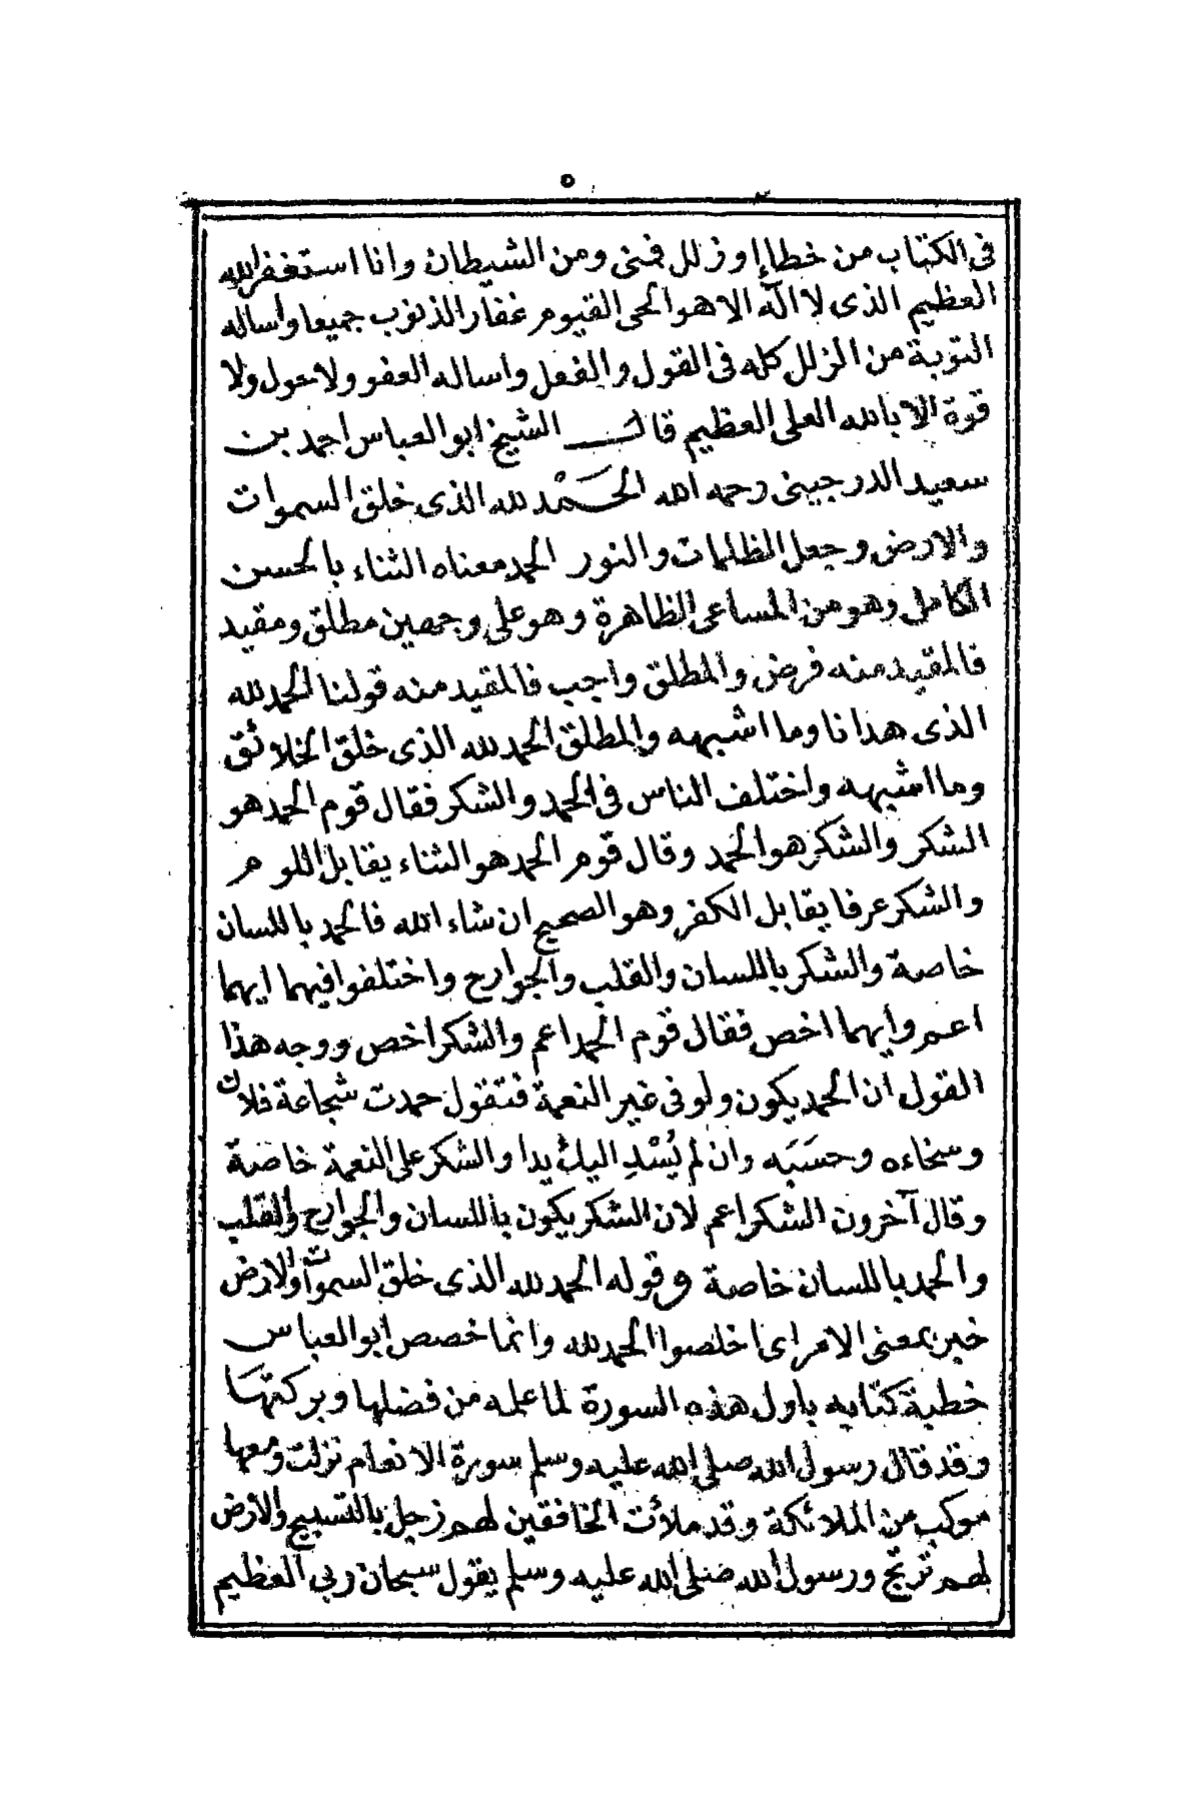 ٥
فى الكتاب من خطاء او زلل فمنى ومن الشيطان وانا استغفر الله
العظيم الذى لا اله الا هو الحى القيوم غفار الذنوب جميعا واساله
التوبة من الزلل كله فى القول والفعل واساله العفو ولا حول ولا
قوة الا بالله العلى العظيم قال الشيخ ابو العباس احمد بن
سعيد الدرجينى رحمه الله الحَمْد لله الذى خلق السموات
والارض وجعل الظلمات والنور الحمد معناه الثناء بالحسن
الكامل وهو من المساعى الظاهرة وهو على وجهين مطلق ومقيد
فالمقيد منه فرض والمطلق واجب فالمقيد منه قولنا الحمد لله
الذى هدانا وما اشبهه والمطلق الحمد لله الذى خلق الخلائق
وما اشبهه واختلف الناس فى الحمد والشكر فقال قوم الحمد هو
الشكر والشكر هو الحمد وقال قوم الحمد هو الثناء يقابل اللوم
والشكر عرفا يقابل الكفر وهو الصحيح ان شاء الله فالحمد باللسان
خاصة والشكر باللسان والقلب والجوارح واختلفوا فيهما ايهما
اعم وايهما اخص فقال قوم الحمد اعم والشكر اخص ووجه هذا
القول ان الحمد يكون ولو فى غير النعمة فتقول حمدت شجاعة فلان
وسخاءه وحسَبَه وان لم يُسْدِ اليك يدا والشكر على النعمة خاصة
وقال آخرون الشكر اعم لان الشكر يكون باللسان والجوارح والقلب
والحمد باللسان خاصة وقوله الحمد لله الذى خلق السموات والارض
خبر بمعنى الامر اى اخلصوا الحمد لله وانما خصص ابو العباس
خطبة كتابه باول هذه السورة لما علمه من فضلها وبركتها
وقد قال رسول الله صلى الله عليه وسلم سورة الانعام نزلت ومعها
موكب من الملائكة وقد ملأت الخافقين لهم زجل بالتسبيح والارض
لهم ترتج ورسول الله صلى الله عليه وسلم يقول سبحان ربي العظيم